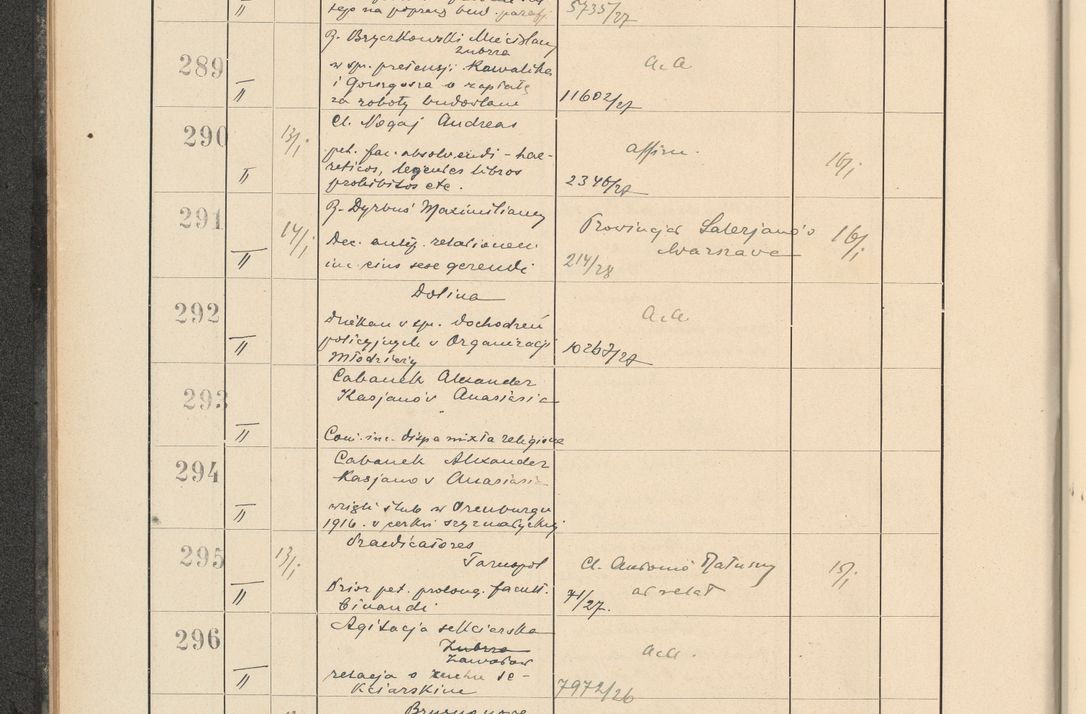 tego na poprawę bud. paraf.
5735/27
289
II
R. Bryczkowski Mieczysław
Zubrza
w spr. pretensji Kowalika
i Gorzgosza o zapłatę
za roboty budowlane
a.a
11602/27
290
II
13/I
Cl. Nogaj Andreas
pet. fac. absolvendi - hae-
reticos, legentes libros
prohibitos etc.
affirm.
2346/27
16/I
291
II
14/I
R. Dyrbuś Maximilianus
Dec. antip. relationem
inc. eius sese gerendi
Prowincjał Salezjanów
Warszawa
214/28
16/I
292
II
Dolina
Dziekan w spr. dochodzeń
policyjnych w Organizacji
Młodzieży
a.a
10267/27
293
II
Cabanek Alexander
Kasjanów Anastasia
Com. inc. dispa mixta religione
294
II
Cabanek Alexander
Kasjanow Anastasia
wzięli ślub w Orenburgu
1916. w cerkwi szyzmatyckiej
295
II
13/I
Praedicatores
Tarnopol
Prior pet. prolong. facult.
binandi
Cl. Antonio Matuszy
ad relat
71/27.
15/I
296
II
Agitacja sekciarska
Zubrza
Zawałów
relacja o ruchu se-
kciarskim
a.a.
7972/26